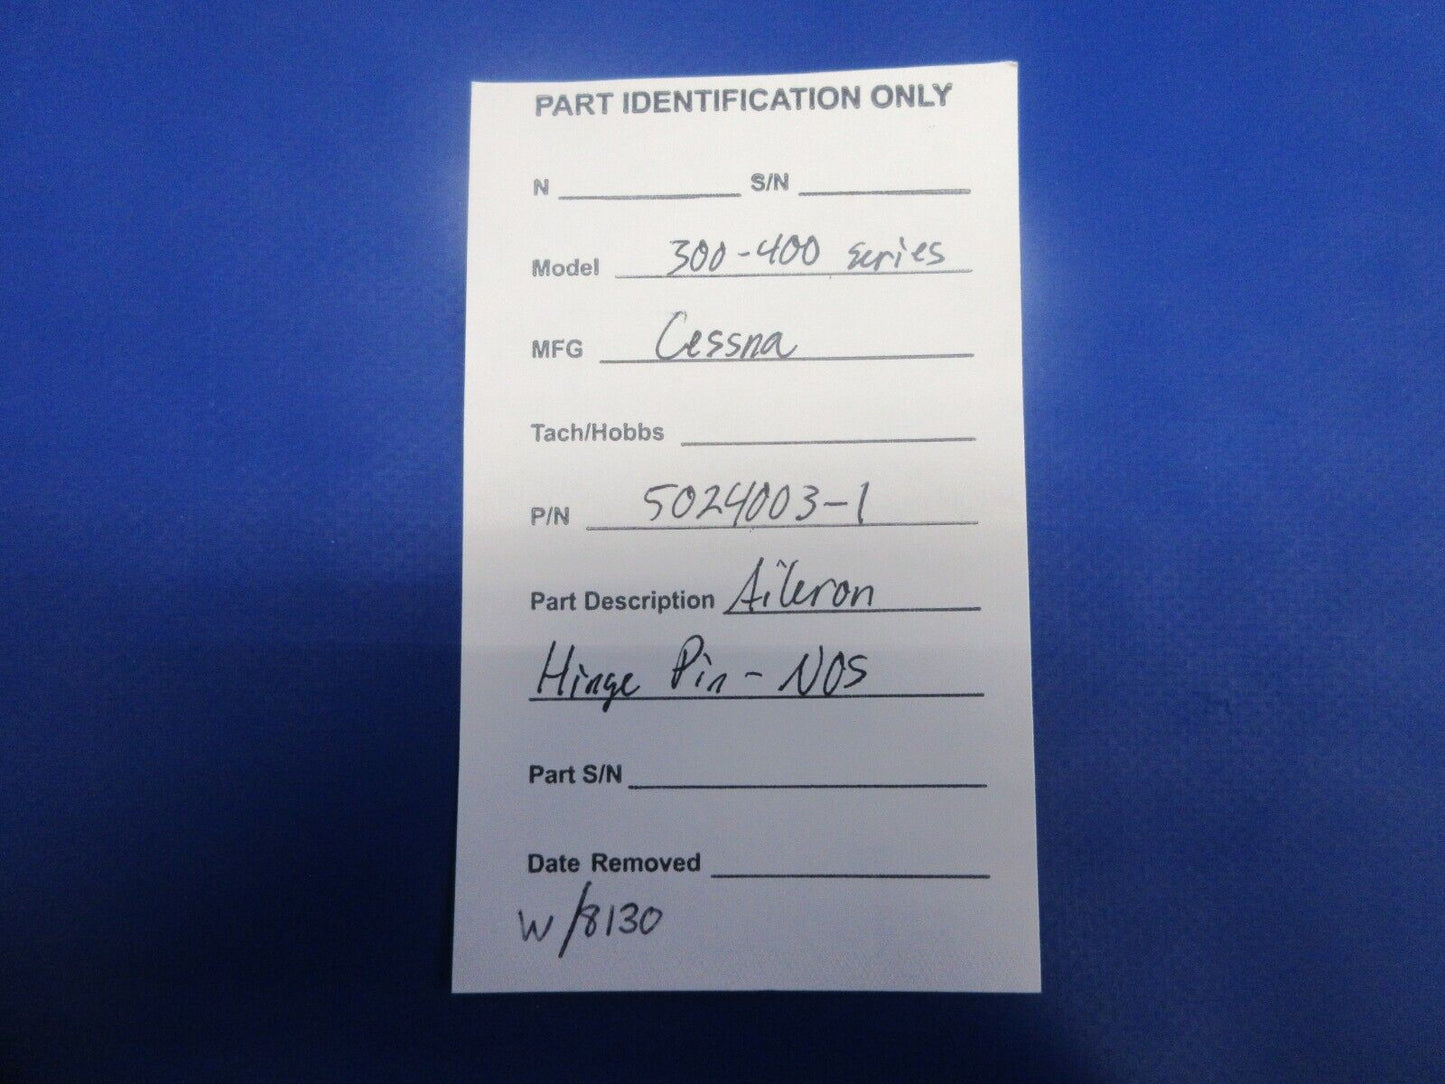 PART IDENTIFICATION ONLY
N S/N
Model 300-400 series
MFG Cessna
Tach/Hobbs
P/N 5024003-1
Part Description Aileron
Hinge Pin - NOS
Part S/N
Date Removed
W/8130